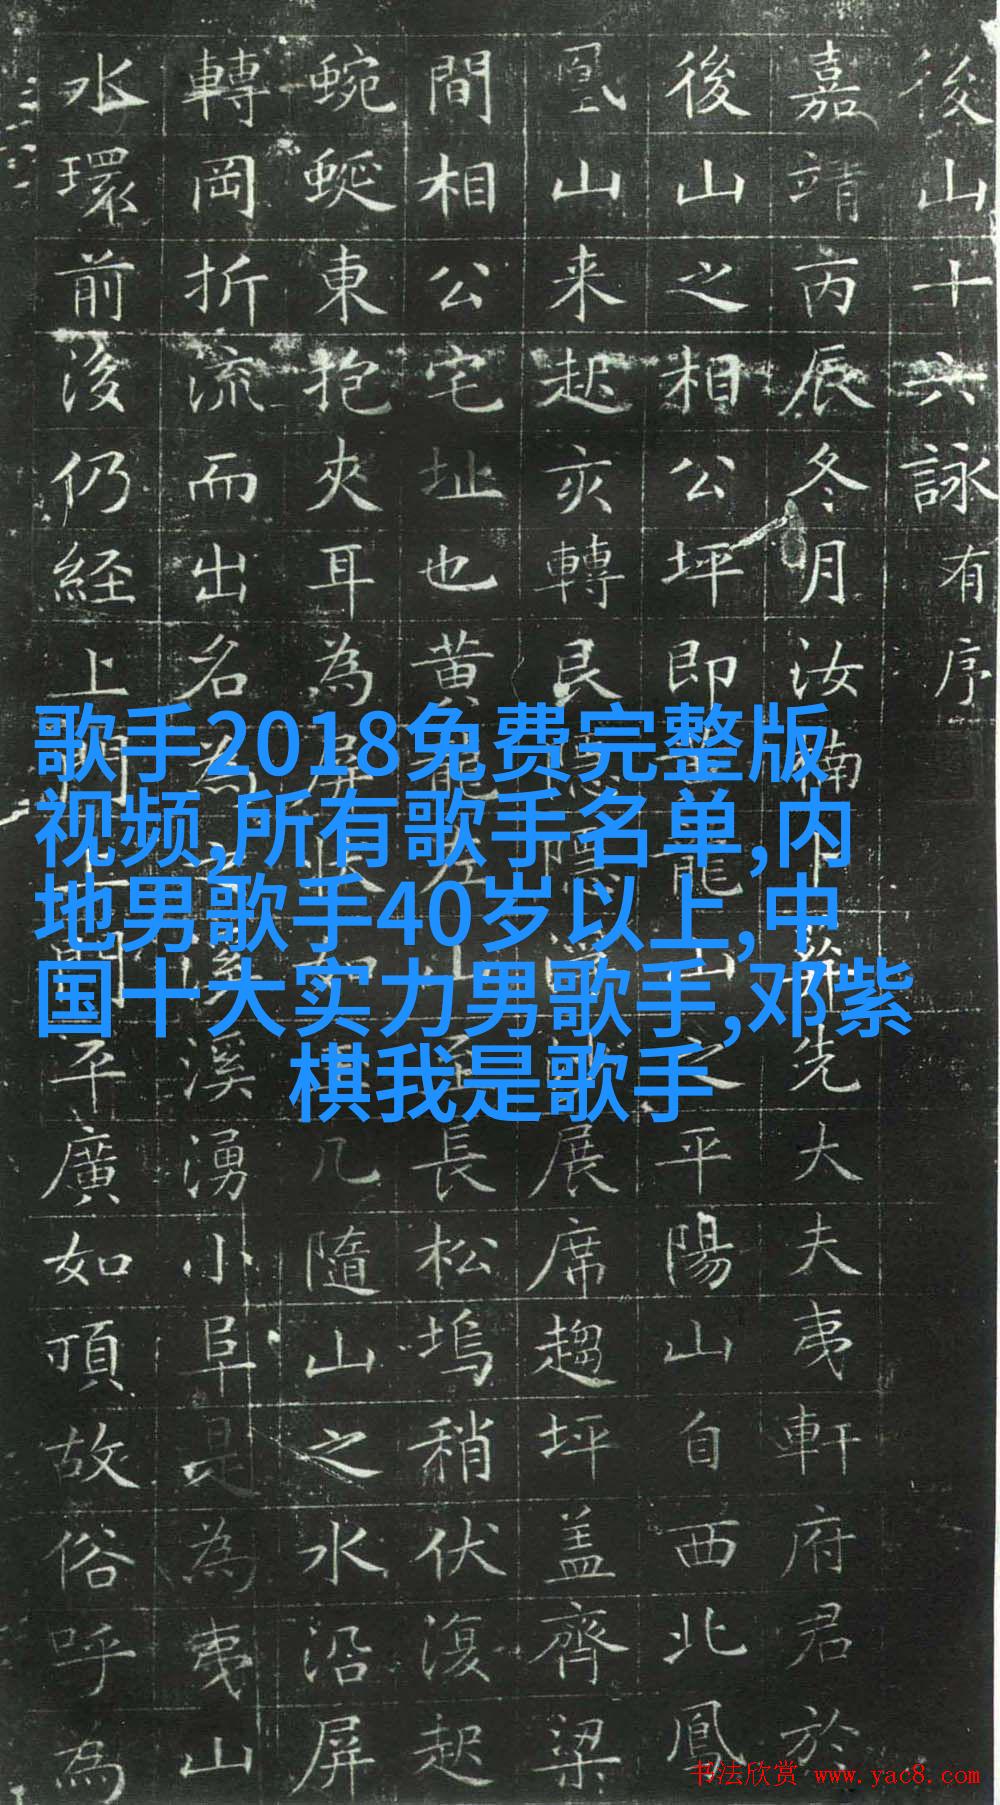 後山十六詠有序
嘉靖丙辰冬月汝楠卜葬先大夫夷軒府君於
後山之相公坪即龍山之平陽山自西北鳳
凰山来起亥轉艮展席趨坪盖齊梁
間相公宅址也黄龍左山長松塢稍伏復起
蜿蜒東抱夾耳為屏如几隨山之水沿屏
轉岡折流而出名為溪湧小阜是為夷山
水環前後仍經上平廣如頂故俗呼為
歌手2018免费完整版
视频,所有歌手名单,内
地男歌手40岁以上,中
国十大实力男歌手,邓紫
棋我是歌手
书法欣赏 www.yac8.com